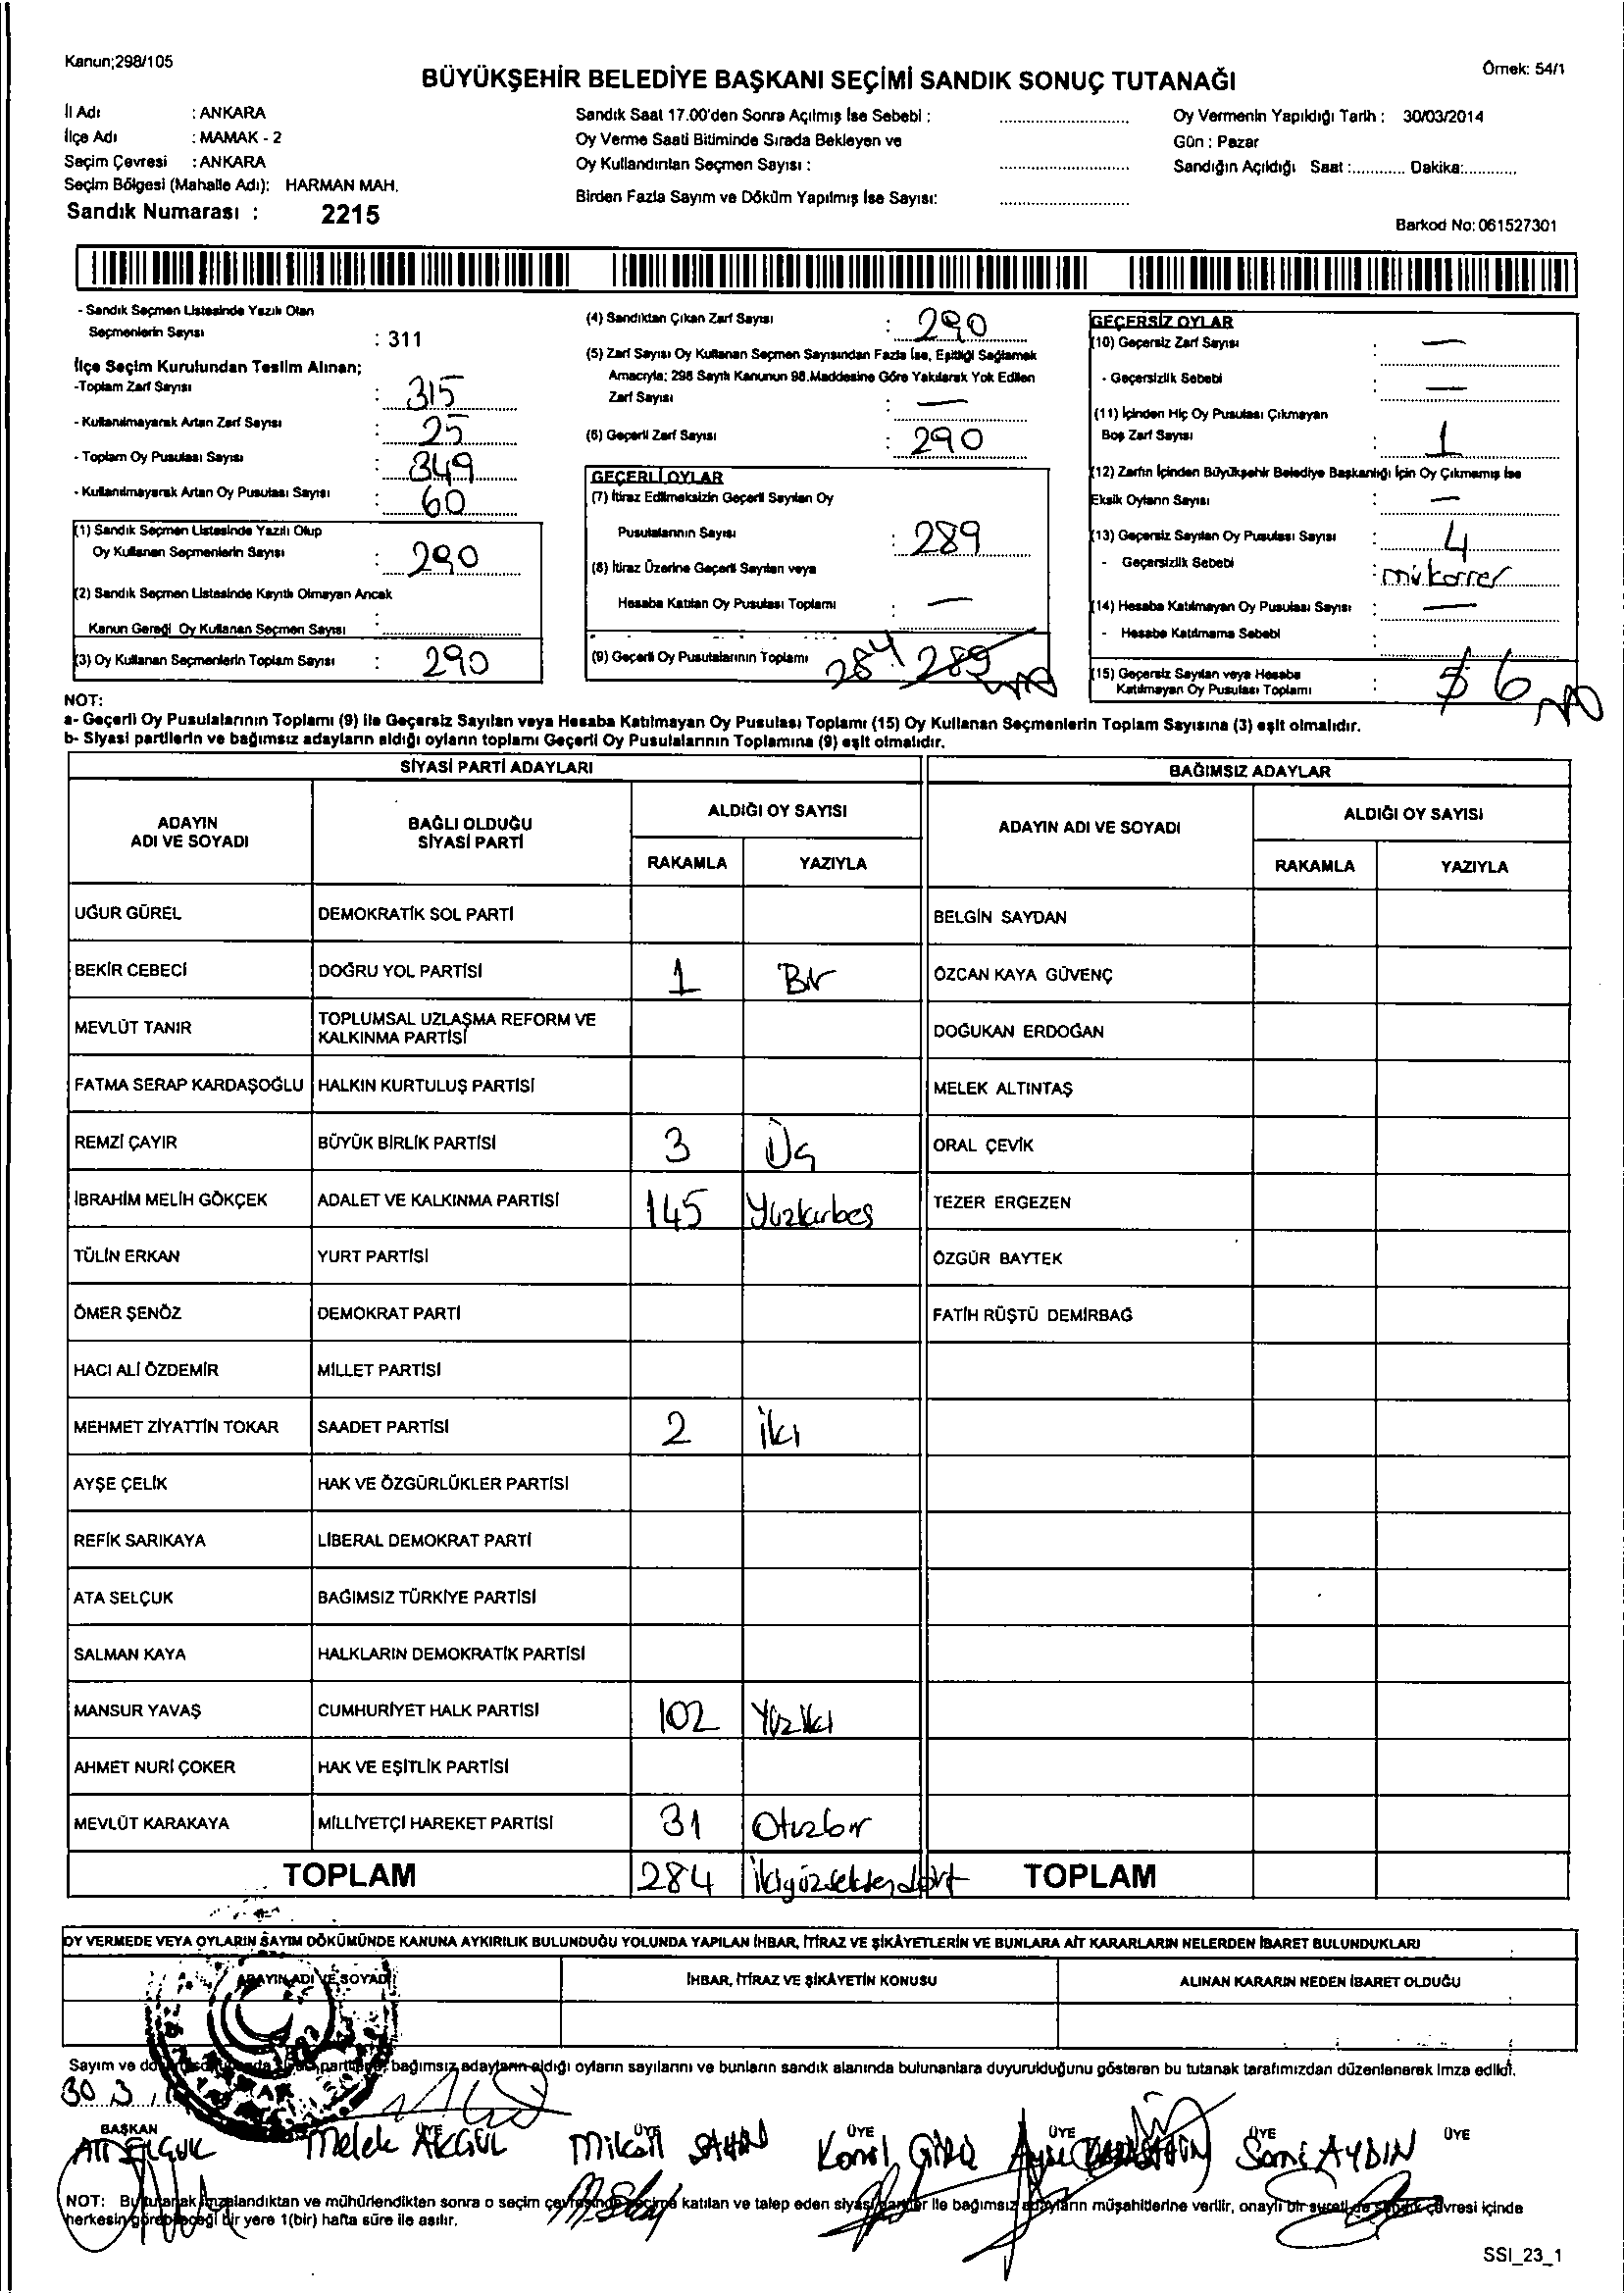 Kanun;298/105
Örnek: 54/1
BÜYÜKŞEHİR BELEDİYE BAŞKANI SEÇİMİ SANDIK SONUÇ TUTANAĞI
İl Adı : ANKARA
İlçe Adı : MAMAK - 2
Seçim Çevresi : ANKARA
Seçim Bölgesi (Mahalle Adı): HARMAN MAH.
Sandık Numarası : 2215
Sandık Saat 17.00'den Sonra Açılmış İse Sebebi :
Oy Verme Saati Bitiminde Sırada Bekleyen ve
Oy Kullandırılan Seçmen Sayısı :
Birden Fazla Sayım ve Döküm Yapılmış İse Sayısı:
Oy Vermenin Yapıldığı Tarih : 30/03/2014
Gün : Pazar
Sandığın Açıldığı Saat :............ Dakika:............
Barkod No: 061527301
- Sandık Seçmen Listesinde Yazılı Olan
Seçmenlerin Sayısı : 311
İlçe Seçim Kurulundan Teslim Alınan;
-Toplam Zarf Sayısı : 315
- Kullanılmayarak Artan Zarf Sayısı : 25
- Toplam Oy Pusulası Sayısı : 349
- Kullanılmayarak Artan Oy Pusulası Sayısı : 60
(1) Sandık Seçmen Listesinde Yazılı Olup
Oy Kullanan Seçmenlerin Sayısı : 290
(2) Sandık Seçmen Listesinde Kayıtlı Olmayan Ancak
Kanun Gereği Oy Kullanan Seçmen Sayısı :
(3) Oy Kullanan Seçmenlerin Toplam Sayısı : 290
(4) Sandıktan Çıkan Zarf Sayısı : 290
(5) Zarf Sayısı Oy Kullanan Seçmen Sayısından Fazla İse, Eşitliği Sağlamak
Amacıyla; 298 Sayılı Kanunun 98.Maddesine Göre Yakılarak Yok Edilen
Zarf Sayısı : —
(6) Geçerli Zarf Sayısı : 290
GEÇERLİ OYLAR
(7) İtiraz Edilmeksizin Geçerli Sayılan Oy
Pusulalarının Sayısı : 289
(8) İtiraz Üzerine Geçerli Sayılan veya
Hesaba Katılan Oy Pusulası Toplamı : —
(9) Geçerli Oy Pusulalarının Toplamı 284 289
GEÇERSİZ OYLAR
(10) Geçersiz Zarf Sayısı : —
- Geçersizlik Sebebi : —
(11) İçinden Hiç Oy Pusulası Çıkmayan
Boş Zarf Sayısı : 1
(12) Zarfın İçinden Büyükşehir Belediye Başkanlığı İçin Oy Çıkmamış İse
Eksik Oyların Sayısı : —
(13) Geçersiz Sayılan Oy Pusulası Sayısı : 4
- Geçersizlik Sebebi : mükerrer
(14) Hesaba Katılmayan Oy Pusulası Sayısı : —
- Hesaba Katılmama Sebebi :
(15) Geçersiz Sayılan veya Hesaba
Katılmayan Oy Pusulası Toplamı : 5 6
NOT:
a- Geçerli Oy Pusulalarının Toplamı (9) ile Geçersiz Sayılan veya Hesaba Katılmayan Oy Pusulası Toplamı (15) Oy Kullanan Seçmenlerin Toplam Sayısına (3) eşit olmalıdır.
b- Siyasi partilerin ve bağımsız adayların aldığı oyların toplamı Geçerli Oy Pusulalarının Toplamına (9) eşit olmalıdır.
SİYASİ PARTİ ADAYLARI
BAĞIMSIZ ADAYLAR
ADAYIN ADI VE SOYADI
BAĞLI OLDUĞU SİYASİ PARTİ
ALDIĞI OY SAYISI
RAKAMLA YAZIYLA
ADAYIN ADI VE SOYADI
ALDIĞI OY SAYISI
RAKAMLA YAZIYLA
UĞUR GÜREL DEMOKRATİK SOL PARTİ BELGİN SAYDAN
BEKİR CEBECİ DOĞRU YOL PARTİSİ 1 Bir ÖZCAN KAYA GÜVENÇ
MEVLÜT TANIR TOPLUMSAL UZLAŞMA REFORM VE KALKINMA PARTİSİ DOĞUKAN ERDOĞAN
FATMA SERAP KARDAŞOĞLU HALKIN KURTULUŞ PARTİSİ MELEK ALTINTAŞ
REMZİ ÇAYIR BÜYÜK BİRLİK PARTİSİ 3 Üç ORAL ÇEVİK
İBRAHİM MELİH GÖKÇEK ADALET VE KALKINMA PARTİSİ 145 Yüzkırbeş TEZER ERGEZEN
TÜLİN ERKAN YURT PARTİSİ ÖZGÜR BAYTEK
ÖMER ŞENÖZ DEMOKRAT PARTİ FATİH RÜŞTÜ DEMİRBAĞ
HACI ALİ ÖZDEMİR MİLLET PARTİSİ
MEHMET ZİYATTİN TOKAR SAADET PARTİSİ 2 İki
AYŞE ÇELİK HAK VE ÖZGÜRLÜKLER PARTİSİ
REFİK SARIKAYA LİBERAL DEMOKRAT PARTİ
ATA SELÇUK BAĞIMSIZ TÜRKİYE PARTİSİ
SALMAN KAYA HALKLARIN DEMOKRATİK PARTİSİ
MANSUR YAVAŞ CUMHURİYET HALK PARTİSİ 102 Yüziki
AHMET NURİ ÇOKER HAK VE EŞİTLİK PARTİSİ
MEVLÜT KARAKAYA MİLLİYETÇİ HAREKET PARTİSİ 31 Otuzbir
TOPLAM 284 İkiyüzseksendört TOPLAM
OY VERMEDE VEYA OYLARIN SAYIM DÖKÜMÜNDE KANUNA AYKIRILIK BULUNDUĞU YOLUNDA YAPILAN İHBAR, İTİRAZ VE ŞİKÂYETLERİN VE BUNLARA AİT KARARLARIN NELERDEN İBARET BULUNDUKLARI
ADAYIN ADI VE SOYADI İHBAR, İTİRAZ VE ŞİKÂYETİN KONUSU ALINAN KARARIN NEDEN İBARET OLDUĞU
Sayım ve bağımsız adayların aldığı oyların sayılarını ve bunların sandık alanında bulunanlara duyurulduğunu gösteren bu tutanak tarafımızdan düzenlenerek imza edildi.
30 3
BAŞKAN ÜYE ÜYE ÜYE ÜYE ÜYE ÜYE
Melek AKGÜL Mikail ŞAHİN Sami AYDIN
NOT: Bu tutanak imzalandıktan ve mühürlendikten sonra o seçim çevresinde seçime katılan ve talep eden siyasi partiler ile bağımsız adayların müşahitlerine verilir, onaylı bir sureti de sandık çevresi içinde
herkesin görebileceği bir yere 1(bir) hafta süre ile asılır.
SSI_23_1